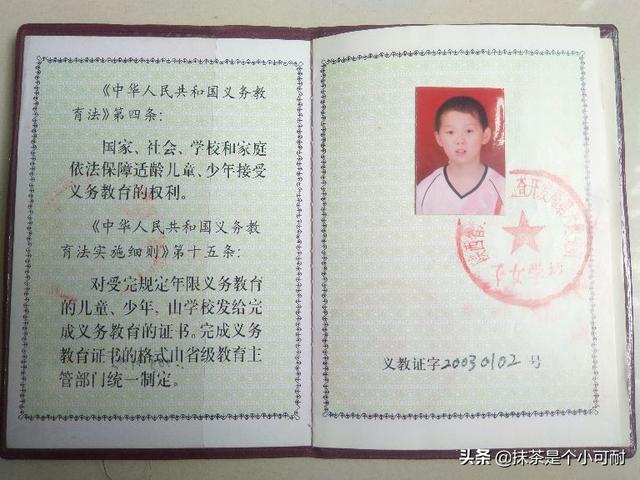 《中华人民共和国义务教
育法》第四条:
国家、社会、学校和家庭
依法保障适龄儿童、少年接受
义务教育的权利。
《中华人民共和国义务教
育法实施细则》第十五条:
对受完规定年限义务教育
的儿童、少年,由学校发给完
成义务教育的证书。完成义务
教育证书的格式由省级教育主
管部门统一制定。
义教证字20030102号
头条 @抹茶是个小可耐